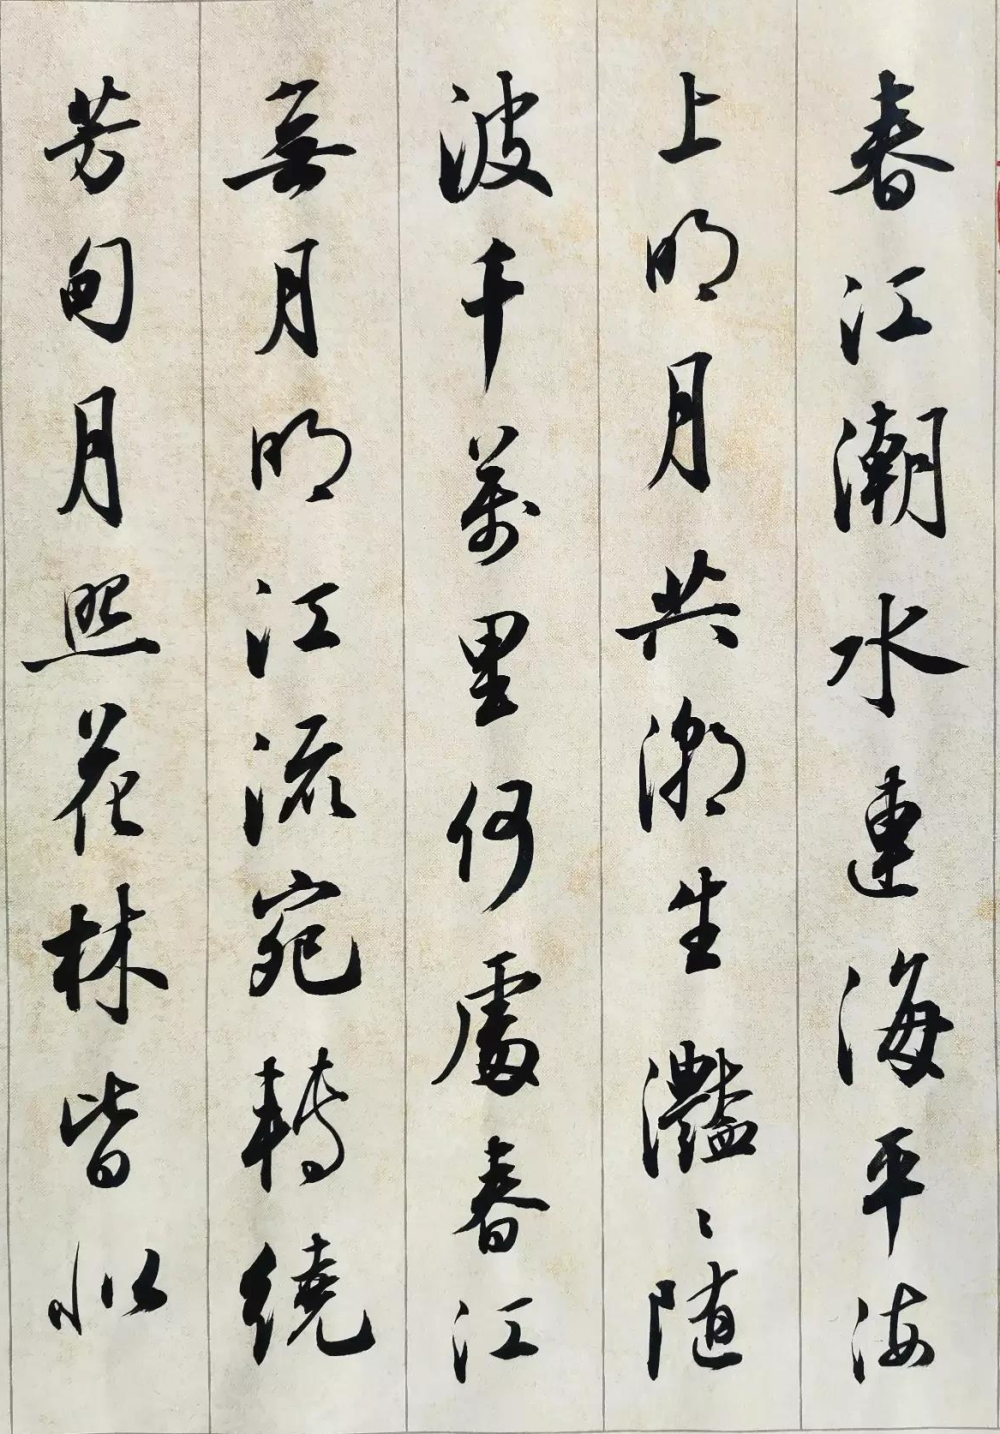 春江潮水連海平海
上明月共潮生灩〻随
波千萬里何處春江
無月明江流宛轉繞
芳甸月照花林皆似